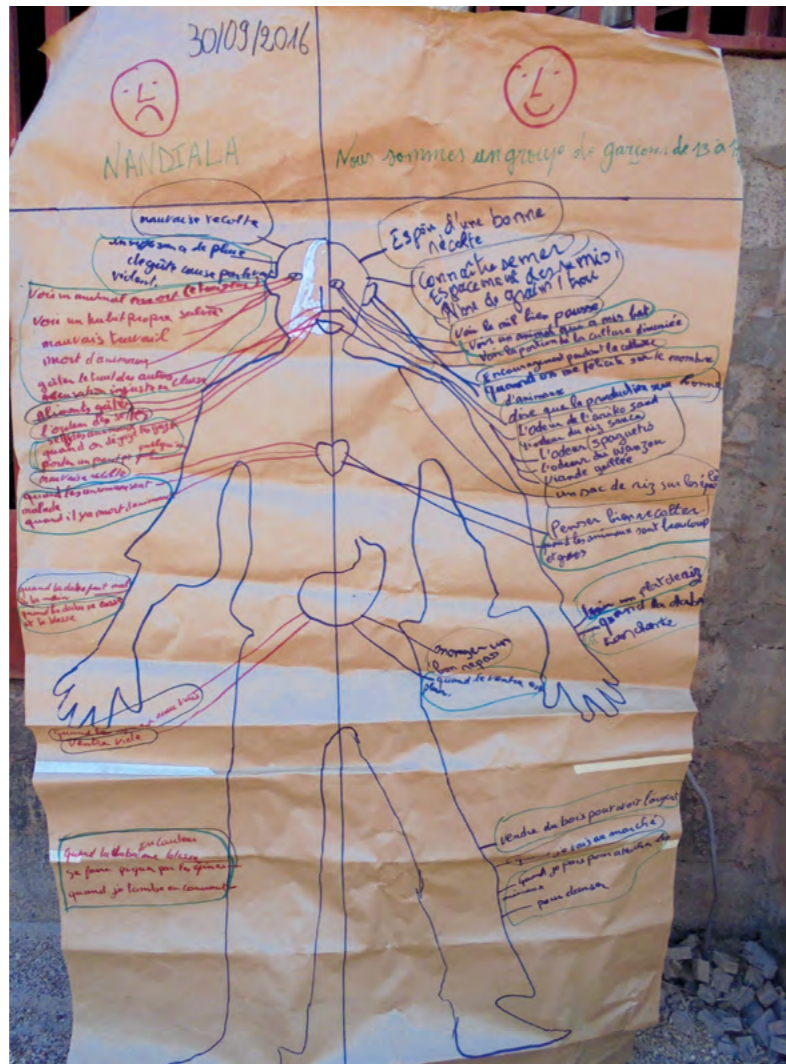 30/09/2016
NANDIALA
Nous sommes un groupe de garçons de 13 à 1
mauvaise recolte
insuffisance de pluie
degâts cause par le vent
violent.
Voir un animal
voir un habit propre
mauvais travail
mort d'animaux
gâter le fruit des autres
accusation injuste en classe
aliments gâtés
l'odeur des selles
selles
quand on
porter un
mauvaise recolte
quand les animaux sont
malade
quand il y a mort d'animaux
quand la daba fait mal
à la main
quand la daba se casse
et la blesse
quand
ventre vide
quand la daba me blesse
se faire piquer par les épines
quand je tombe en courant
Espoir d'une bonne
récolte
Connaître semer
Espacement des semis,
Nbre de grain / trou
Voir le mil bien pousse
Voir un animal qui a mis bat
Voir la portion de la culture
Encouragement pendant la culture
quand on me felicite sur le nombre
d'animaux
dire que la production sera bonne
L'odeur de l'aniko sauté
L'odeur du riz sauce
L'odeur spaguetti
L'odeur du wanzou
viande grillée
un sac de riz sur les
Penser bien recolter
quand les animaux sont beaucoup
et gros
un plat de riz
quand la daba
tranchante
manger un
bon repas
quand le ventre est
plein.
vendre du bois pour avoir l'argent
je vais au marché
quand je pars pour
pour danser